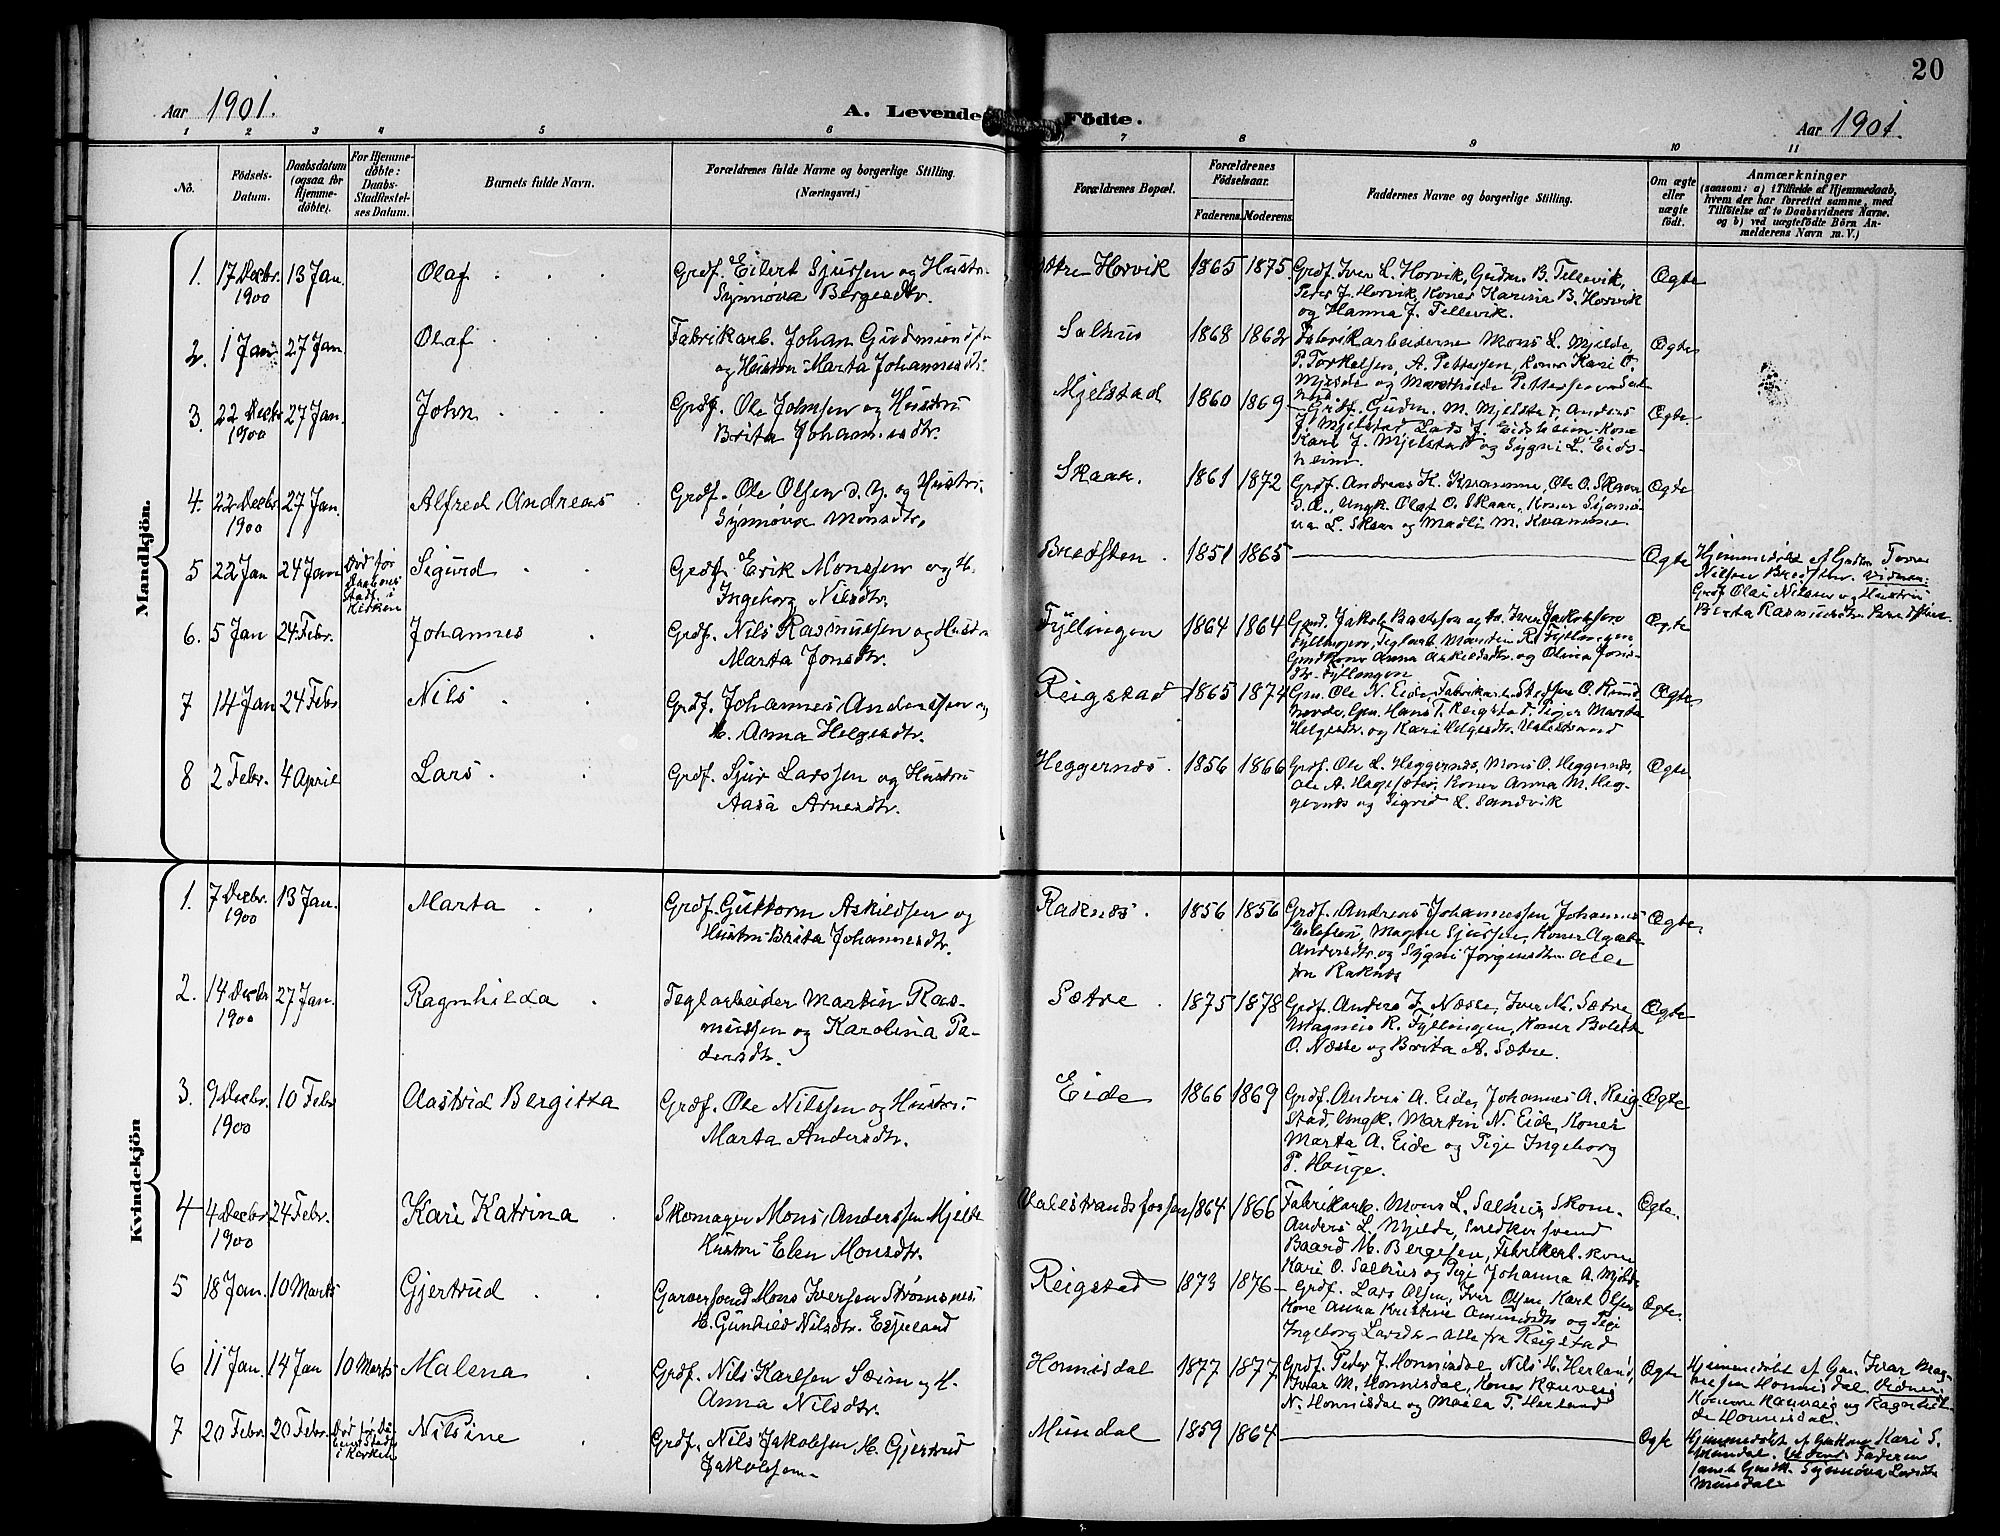 20
Aar 1901.
A. Levende Födte.
Aar 1901.
1 2 3 4 5 6 7 8 9 10 11
No.
Födsels-
Datum.
Daabsdatum
(ogsaa for
Hjemme-
döbte).
For Hjemme-
döbte:
Daabs-
Stadfæstel-
ses Datum.
Barnets fulde Navn.
Forældrenes fulde Navne og borgerlige Stilling.
(Næringsvei.)
Forældrenes Bopæl.
Forældrenes
Födselsaar.
Faderens. Moderens.
Faddernes Navne og borgerlige Stilling.
Om ægte
eller
uægte
födt.
Anmærkninger
(saasom: a) i Tilfælde af Hjemmedaab,
hvem der har forrettet samme, med
Tilföielse af to Daabsvidners Navne.
og b) ved uægtefödte Börn An-
melderens Navn m. V.)
Mandkjön.
1. 17 Decbr. 13 Jan. Olaf Grdf. Eilert Sjursen og Hustr. Horvik 1865 1875. Grdf. Iver L. Horvik, Gudm. B. Tellevik, Ægte
1900 Synnøva Bergesdtr. Peder J. Horvik, Koner Karina B. Horvik
og Hanna J. Tellevik.
2. 1 Jan 27 Jan. Olaf Fabrikarb. Johan Gudmunds
og Hustru Marta Johannesdt. Salhus 1868 1862 Fabrikarbeiderne Mons L. Mjelde, Ægte
P. Torkelsen, A. Pettersen, Koner Kari O.
Mjelde og Marthilde Pettersen
3. 22 Decbr 27 Jan. John Grdf. Ole Johnsen og Hustru Mjelstad 1860 1869 Grdf. Gudm. M. Mjelstad, Anders Ægte.
1900 Brita Johannesdtr. J. Mjelstad Lars J. Eidsheim Kone
Kari J. Mjelstad og Sygni L. Eids-
heim.
4. 22 Decbr 27 Jan. Alfred Andreas Grdf. Ole Olsen d. y. og Hustru Skaar. 1861 1872 Grdf. Andreas K. Kvamme, Ole O. Skaar Ægte
1900 Synnøva Monsdtr. d. æ., Ungk. Olaf O. Skaar, Koner Synnø-
va L. Skaar og Madli M. Kvamme
5 22 Jan 24 Jan Død før Sigurd Grdf. Erik Monssen og H. Bredsten. 1851 1865 Ægte Hjemmedøbt af Grdkone
Stadf. i
Kirken
Ingeborg Nilsdtr. Nilsen Bredsten. Vidner:
Grdf Olai Nilssen og Hustru
Berta Rasmusdtr. Bredsten.
6. 5 Jan 24 Febr. Johannes Grdf. Nils Rasmussen og Hustru Fyllingen 1864 1864 Grdf. Jakob Baardsen og Iver Jakobsen Ægte
Marta Jonsdtr. Fyllingen, Teglarb. Martin R. Fyllingen
Grdkone Anna Askildsdtr. og Olina Jons-
dtr. Fyllingen
7 14 Jan 24 Febr Nils Grdf. Johannes Anderssen og Reigstad 1865 1874 Gm. Ole N. Eide, Fabrikarb. Steffen O. Rund- Ægte
H. Anna Helgesdtr. Gm. Hans T. Reigstad, Piger Marta
Helgesdtr. og Kari Helgesdtr.
8 2 Febr. 4 April Lars. Grdf. Sjur Larssen og Hustru Heggernes. 1856 1866 Grdf. Ole L. Heggernes, Mons O. Heggernes, Ægte.
Aasa Arnesdtr. Ole A. Koner Anna M. Heg-
gernes og Sigrid L. Sandvik
Kvindekjön
1. 7 Decbr. 13 Jan. Marta Grdf. Guttorm Askildsen og Raknes. 1856 1856 Grdf. Andreas Johannessen, Johannes Ægte
1900 Hustru Brita Johannesdtr. Magne Sjursen, Koner Agate
Andersdtr. og Sygni Jørgensdtr. Alle
fra Raknes
2. 14 Decbr 27 Jan. Ragnhilda Teglarbeider Martin Ras- Sætre 1875 1878 Grdf. Anders J. Næsse, Iver M. Sætre, Ægte
1900 mussen og Karolina Pe- Magnus R. Fyllingen, Koner Bolette
dersdtr. O. Næsse og Brita A. Sætre.
3. 9 Decbr. 10 Febr Aastrid Bergitta Grdf. Ole Nilssen og Hustru Eide 1866 1869 Grdf. Anders A. Eide, Johannes A. Reig- Ægte
1900 Marta Andersdtr. stad, Ungk. Martin N. Eide, Koner
Marta A. Eide og Pige Ingeborg
P. Hauge.
4 4 Decbr 24 Febr. Kari Katrina Skomager Mons Anderssen Mjelde Valestrandsfossen 1864 1866 Fabrikarb. Mons L. Salhus, Skom. Ægte.
1900 Hustru Elen Monsdtr. Anders L. Mjelde, Snedkersvend
Baard M. Bergesen, Fabrikarb. kone
Kari O. Salhus og Pige Johanna A. Mjelde
5 18 Jan. 10 Marts Gjertrud Garversvend Mons Iversen Strømsnes Reigstad 1873 1876 Grdf. Lars Olsen, Iver Olsen Karl Olsen Ægte.
H. Gunhild Nilsdtr. Espeland Kone Anna Kristine Amundsdtr og Pige
Ingeborg Larsdtr. alle fra Reigstad
6 11 Jan. 14 Jan 10 Marts Malena Grdf. Nils Karlsen Sæim og H. Honnisdal 1877 1877 Grdf. Peder J. Honnisdal, Nils H. Herland, Ægte Hjemmedøbt af Gm. Ivar Mag-
Anna Nilsdtr. Ivar M. Honnisdal, Koner Ranveig nessen Honnisdal. Vidner:
N. Honnisdal og Maela T. Herland Konerne Ranveig og Ragnhil-
de Honnisdal.
7 20 Febr. 20 Febr. Død før Nilsine Grdf. Nils Jakobsen H. Gjertrud Mundal 1859 1864 Ægte Hjemmedøbt af Grdkone Kari S.
Stadf. i Kirken Jakobsen Mundal. Vidner: Faderen
samt Grdk. Synnøva Larsdtr
Mundal